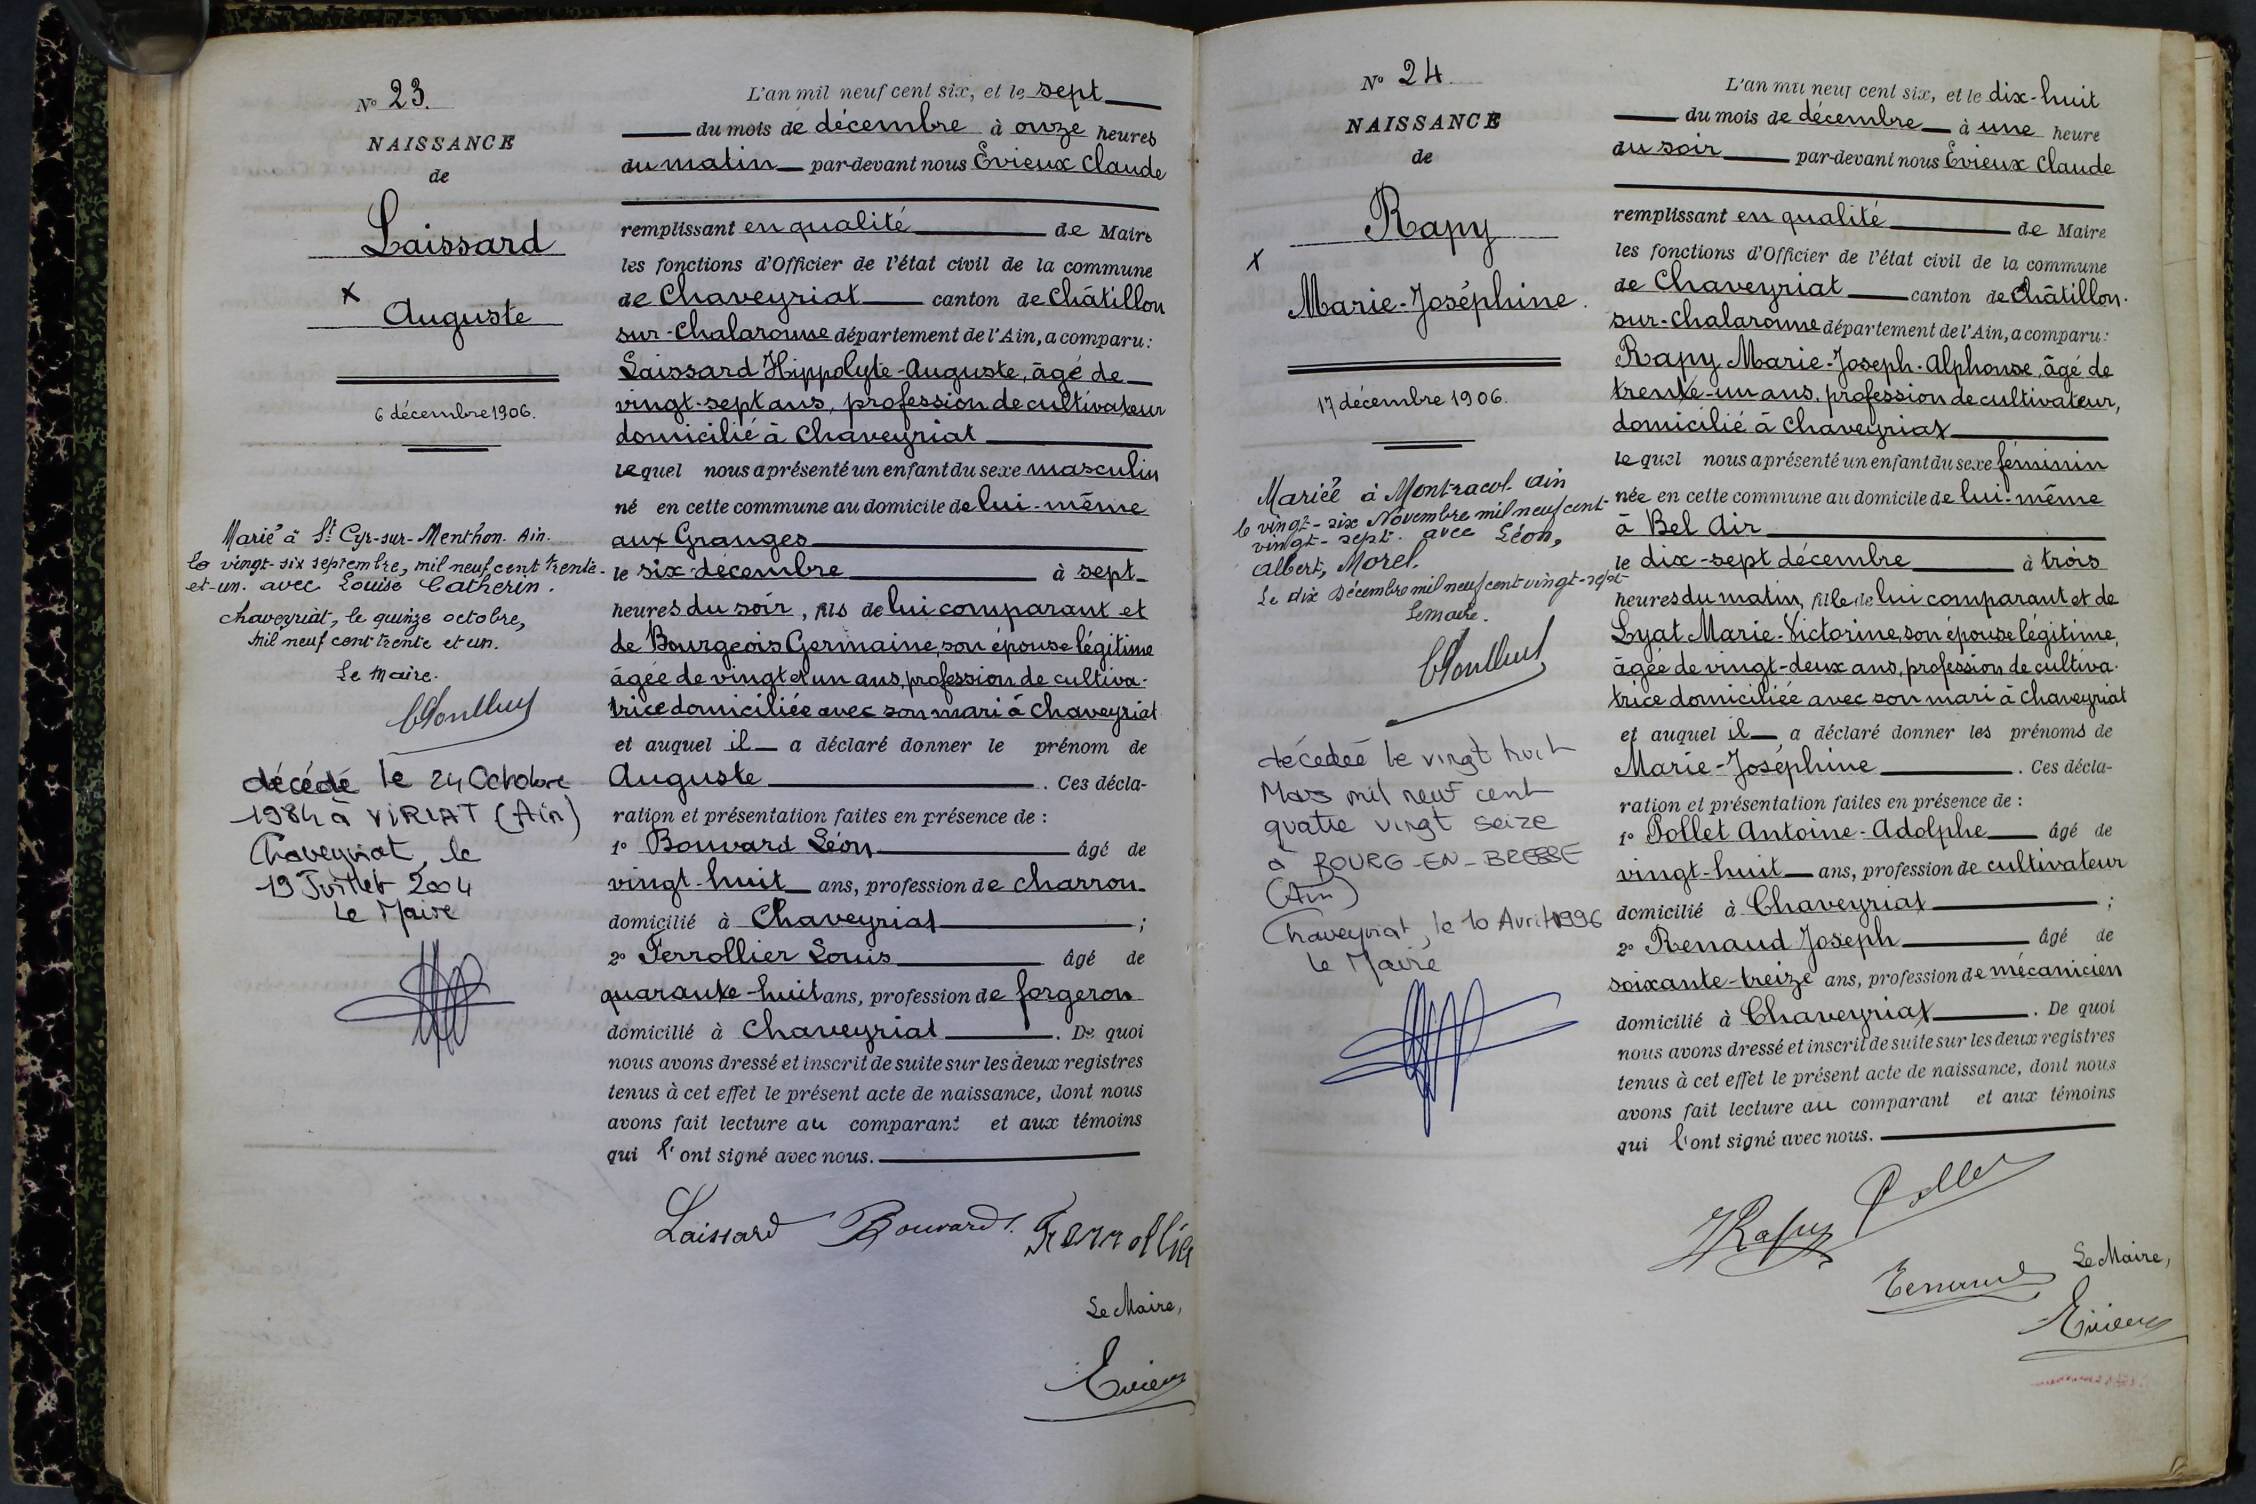 N° 23.
NAISSANCE
de
Laissard
x
Auguste
6 décembre 1906.
Marié à St Cyr-sur-Menthon. Ain.
le vingt-six septembre, mil neuf cent trente-
et-un. avec Louise Catherin.
Chaveyriat, le quinze octobre,
mil neuf cent trente et un.
Le Maire.
décédé le 24 Octobre
1984 à VIRIAT (Ain)
Chaveyriat, le
19 Juillet 2004
Le Maire
L'an mil neuf cent six, et le sept
du mois de décembre à onze heures
du matin par-devant nous Evieux Claude
remplissant en qualité de Maire
les fonctions d'Officier de l'état civil de la commune
de Chaveyriat canton de Châtillon
sur-Chalaronne département de l'Ain, a comparu:
Laissard Hippolyte-Auguste, âgé de
vingt-sept ans, profession de cultivateur
domicilié à Chaveyriat
lequel nous a présenté un enfant du sexe masculin
né en cette commune au domicile de lui-même
aux Granges
le six décembre à sept
heures du soir, fils de lui comparant et
de Bourgeois Germaine, son épouse légitime
âgée de vingt et un ans, profession de cultiva-
trice domiciliée avec son mari à Chaveyriat
et auquel il a déclaré donner le prénom de
Auguste. Ces décla-
ration et présentation faites en présence de :
1° Bouvard Léon âgé de
vingt-huit ans, profession de charron
domicilié à Chaveyriat ;
2° Ferrollier Louis âgé de
quarante-huit ans, profession de forgeron
domicilié à Chaveyriat. De quoi
nous avons dressé et inscrit de suite sur les deux registres
tenus à cet effet le présent acte de naissance, dont nous
avons fait lecture au comparant et aux témoins
qui l'ont signé avec nous.
Laissard Bouvard. Ferrollier
Le Maire,
Evieux
N° 24
NAISSANCE
de
Rapy
x
Marie-Joséphine.
17 décembre 1906.
Mariée à Montracol. Ain
le vingt-six Novembre mil neuf cent
vingt-sept. avec Léon,
Albert, Morel.
Le dix Décembre mil neuf cent vingt-sept
Le maire.
décédée le vingt huit
Mars mil neuf cent
quatre vingt seize
à BOURG-EN-BRESSE
(Ain)
Chaveyriat, le 10 Avril 1996
Le Maire
L'an mil neuf cent six, et le dix-huit
du mois de décembre à une heure
du soir par-devant nous Evieux Claude
remplissant en qualité de Maire
les fonctions d'Officier de l'état civil de la commune
de Chaveyriat canton de Châtillon-
sur-Chalaronne département de l'Ain, a comparu:
Rapy Marie-Joseph-Alphonse, âgé de
trente-un ans, profession de cultivateur,
domicilié à Chaveyriat
lequel nous a présenté un enfant du sexe féminin
née en cette commune au domicile de lui-même
à Bel Air
le dix-sept décembre à trois
heures du matin, fille de lui comparant et de
Lyat Marie-Victorine, son épouse légitime,
âgée de vingt-deux ans, profession de cultiva-
trice domiciliée avec son mari à Chaveyriat
et auquel il a déclaré donner les prénoms de
Marie-Joséphine. Ces décla-
ration et présentation faites en présence de :
1° Pollet Antoine-Adolphe âgé de
vingt-huit ans, profession de cultivateur
domicilié à Chaveyriat ;
2° Renaud Joseph âgé de
soixante-treize ans, profession de mécanicien
domicilié à Chaveyriat. De quoi
nous avons dressé et inscrit de suite sur les deux registres
tenus à cet effet le présent acte de naissance, dont nous
avons fait lecture au comparant et aux témoins
qui l'ont signé avec nous.
Pollet
JRapy
Renaud
Le Maire,
Evieux